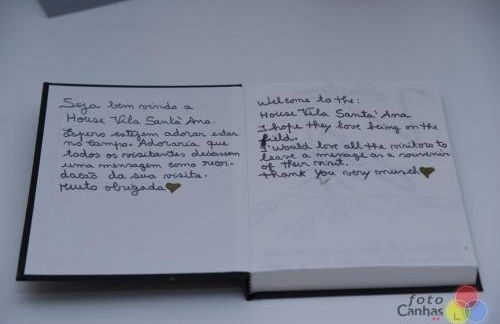 Seja bem vindo a
House Vila Santa' Ana.
Espero estejem adorar estar
no campo. Adoraria que
todos os visitantes deixassem
uma mensagem como recor-
dação da sua visita.
Muito obrigada
Welcome to the:
House Vila Santa' Ana
I hope they love being on the
field.
I would love all the visitors to
leave a message as a souvenir
of their visit.
thank you very munsch
foto
Canhas